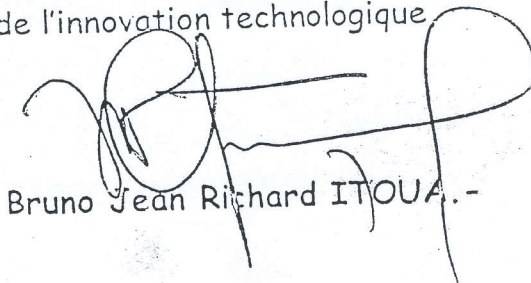 de l'innovation technologique
Bruno Jean Richard ITOUA.-